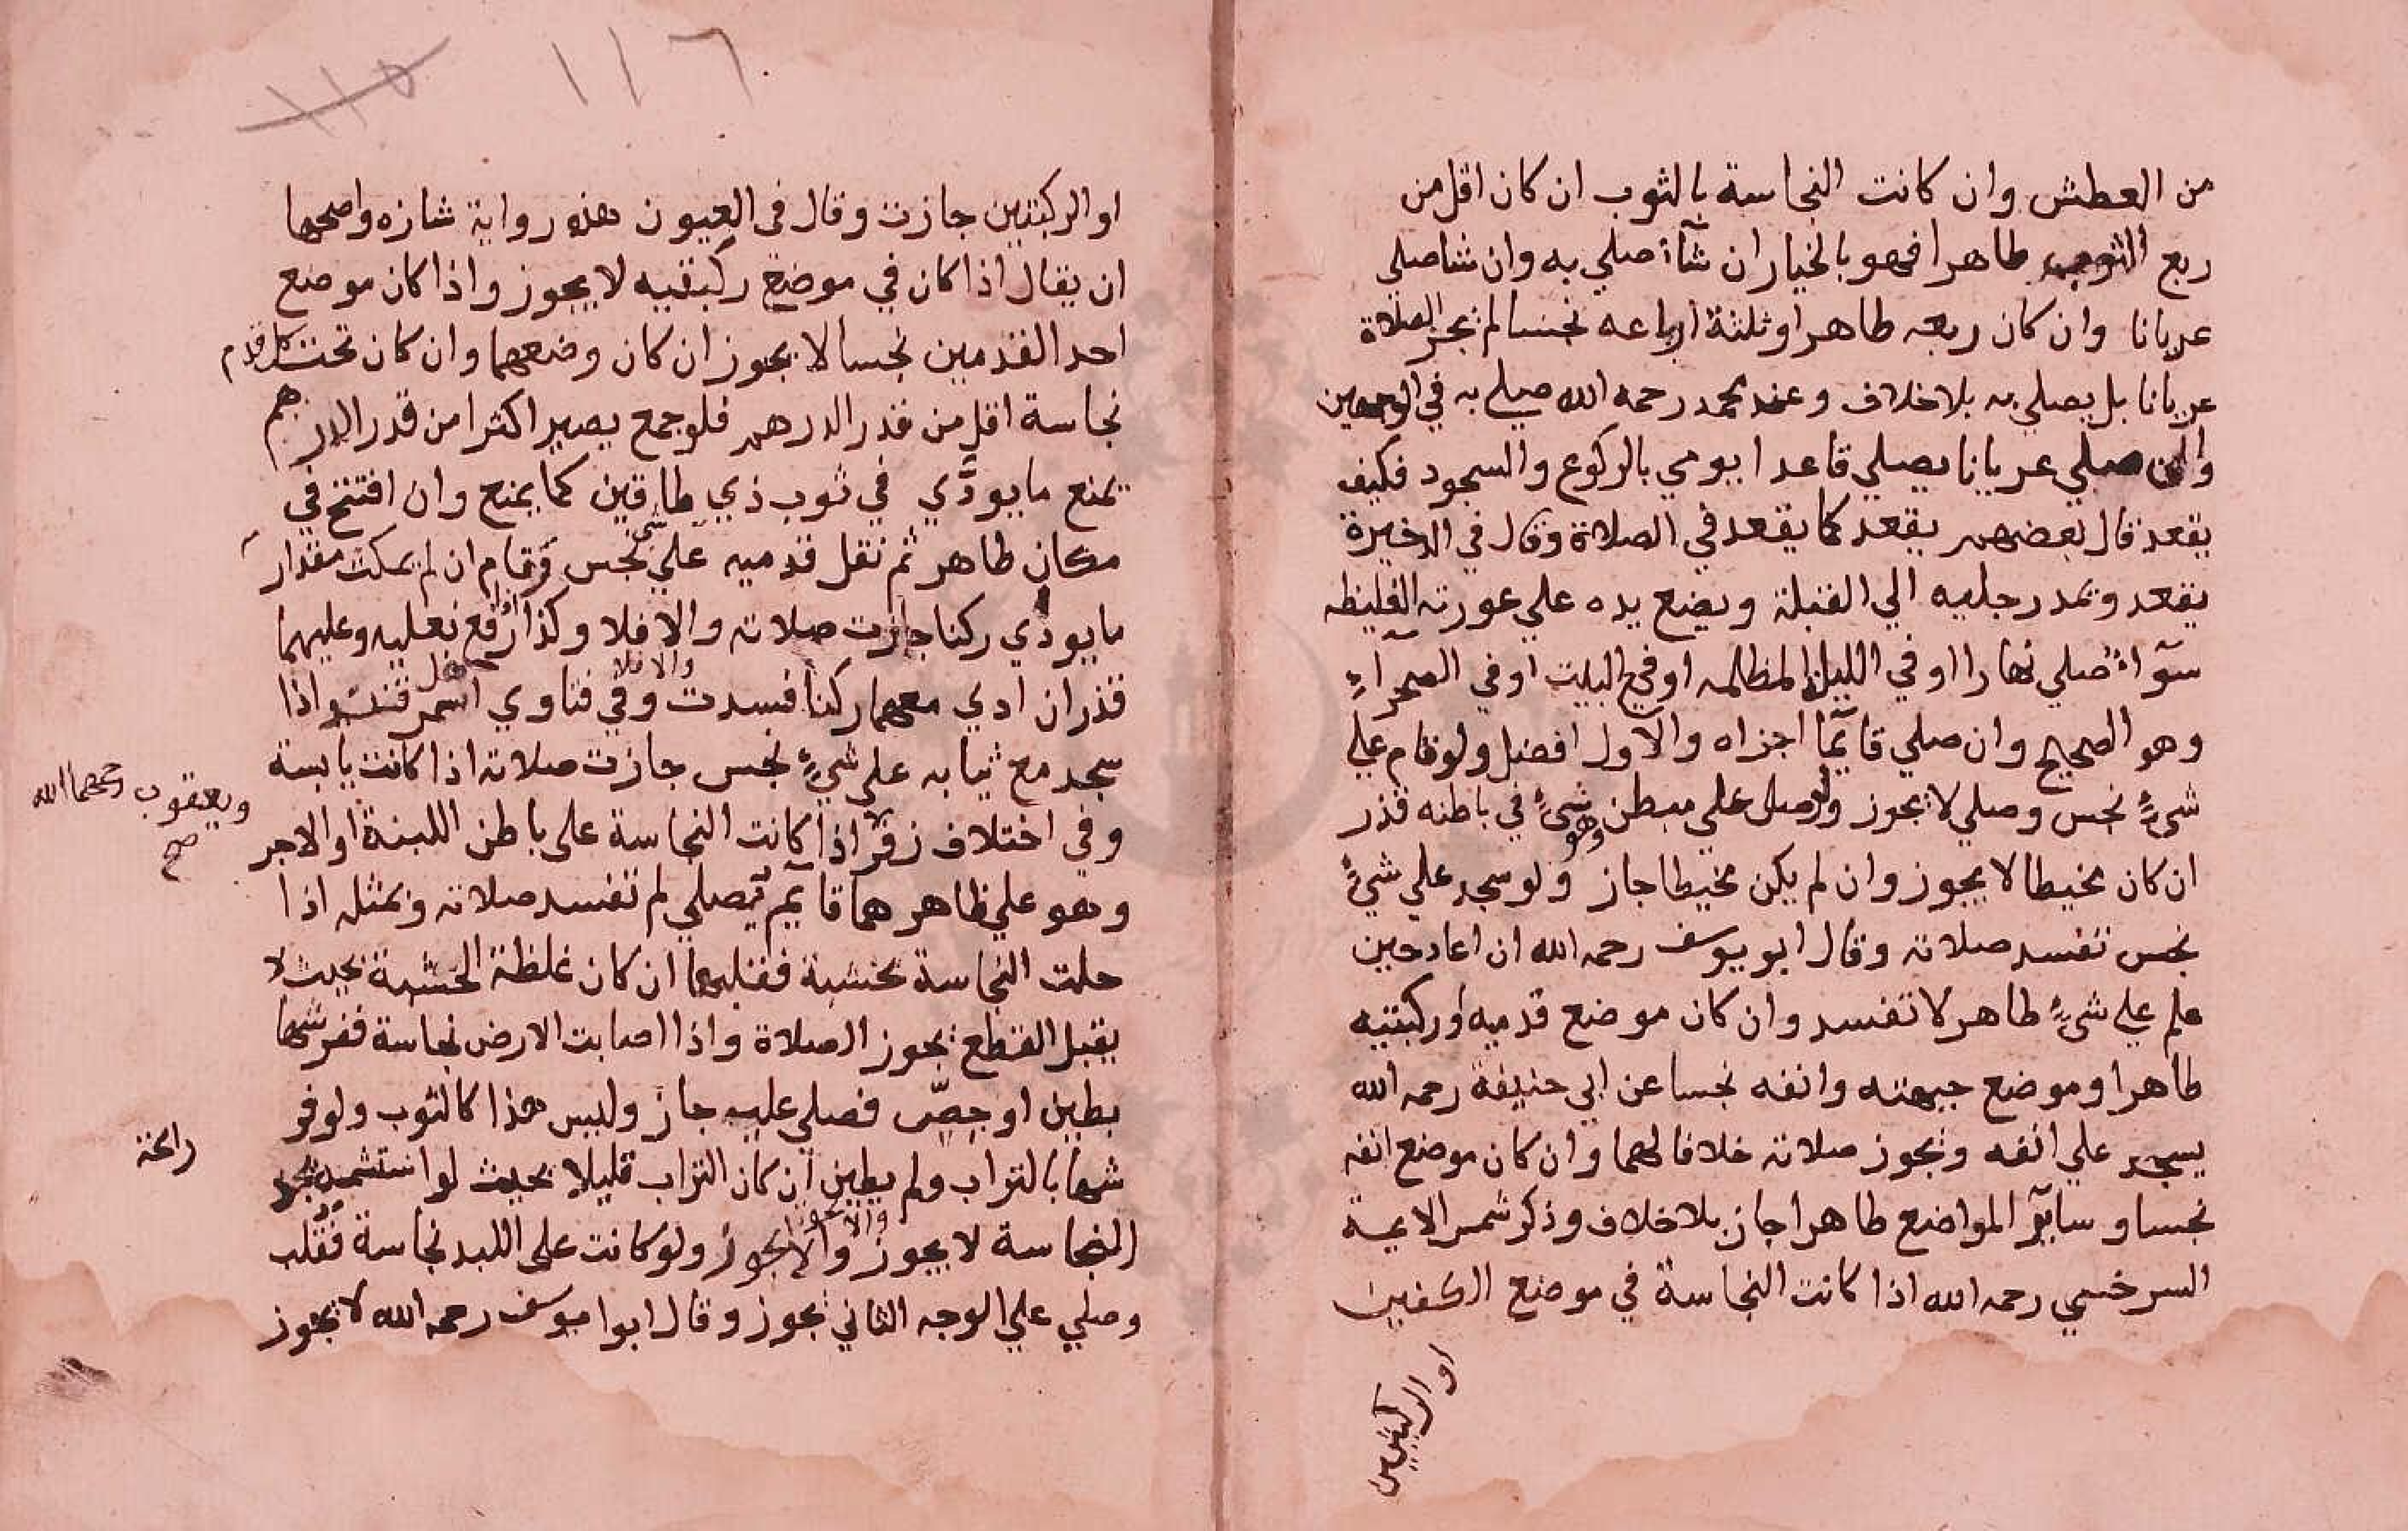 من العطش وان كانت النجاسة بالثوب ان كان اقل من
ربع الثوب طاهرا فهو بالخيار ان شآء صلي به وان شا صلى
عريانا وان كان ربعه طاهرا وثلثة ارباعه نجسا لم تجز الصلاة
عريانا بل يصلي به بلا خلاف وعند محمد رحمه الله صلي به في الوجهين
صلي عريانا يصلي قاعدا يومي بالركوع والسجود فكيف
يقعد قال بعضهم يقعد كما يقعد في الصلاة وقال في الذخيرة
يقعد ويمد رجليه الي القبلة ويضع يده علي عورته الغليظه
سوآء صلي نهارا او في الليل المظلمه او في البيت او في الصحرآء
وهو الصحيح وان صلي قآيما اجزاه والاول افضل ولو قام علي
شيءٍ نجس وصلي لا يجوز ولو صلى علي مبطن وهو شيءٌ في باطنه قذر
ان كان مخيطا لا يجوز وان لم يكن مخيطا جاز ولو سجد علي شيءٍ
نجس تفسد صلاته وقال ابو يوسف رحمه الله ان اعاد حين
علم علي شيءٍ طاهر لا تفسد وان كان موضع قدميه او ركبتيه
طاهرا وموضع جبهته وانفه نجسا عن ابي حنيفة رحمه الله
يسجد علي انفه وتجوز صلاته خلافا لهما وان كان موضع انفه
نجسا وسآير المواضع طاهرا جاز بلا خلاف وذكر شمس الايمة
السرخسي رحمه الله اذا كانت النجاسة في موضع الكفين
او الركبتين
١١٦
١١٥
او الركبتين جازت وقال في العيون هذه رواية شازه واصحها
ان يقال اذا كان في موضع ركبتيه لا يجوز واذا كان موضع
احد القدمين نجسا لا يجوز ان كان وضعهما وان كان تحت كل قدم
نجاسة اقل من قدر الدرهم فلو جمع يصير اكثرا من قدر الدرهم
يمنع ما يودَّي في ثوب ذي طاقين كما يمنع وان افتتح في
مكان طاهر ثم نقل قدميه علي شي نجس وقام ان لم يمكث مقدار
ما يودي ركنا جازت صلاته والا فلا وكذا ان رفع نعليه وعليهما
قذر ان ادي معهما ركنا فسدت والا فلا وفي فتاوي اهل سمرقند واذا
سجد مع ثيابه علي شيءٍ نجس جازت صلاته اذا كانت يابسة
وفي اختلاف زفر اذا كانت النجاسة علي باطن اللبنة او الاجر
ويعقوب رحمهما الله
صح
وهو علي ظاهرهما قآيم يصلي لم تفسد صلاته وبمثله اذا
حلت النجاسة بخشبة فقلبها ان كان غلظة الخشبة بحيث لا
يقبل القطع تجوز الصلاة واذا اصابت الارض نجاسة ففرشها
بطين او جصّ فصلي عليه جاز وليس هذا كالثوب ولو فر
شها بالتراب ولم يطين ان كان التراب قليلا بحيث لو استشمه يجد
رائحة
النجاسة لا يجوز والا يجوز ولو كانت على اللبد نجاسة فقلب
وصلي علي الوجه الثاني يجوز وقال ابوا يوسف رحمه الله لا يجوز